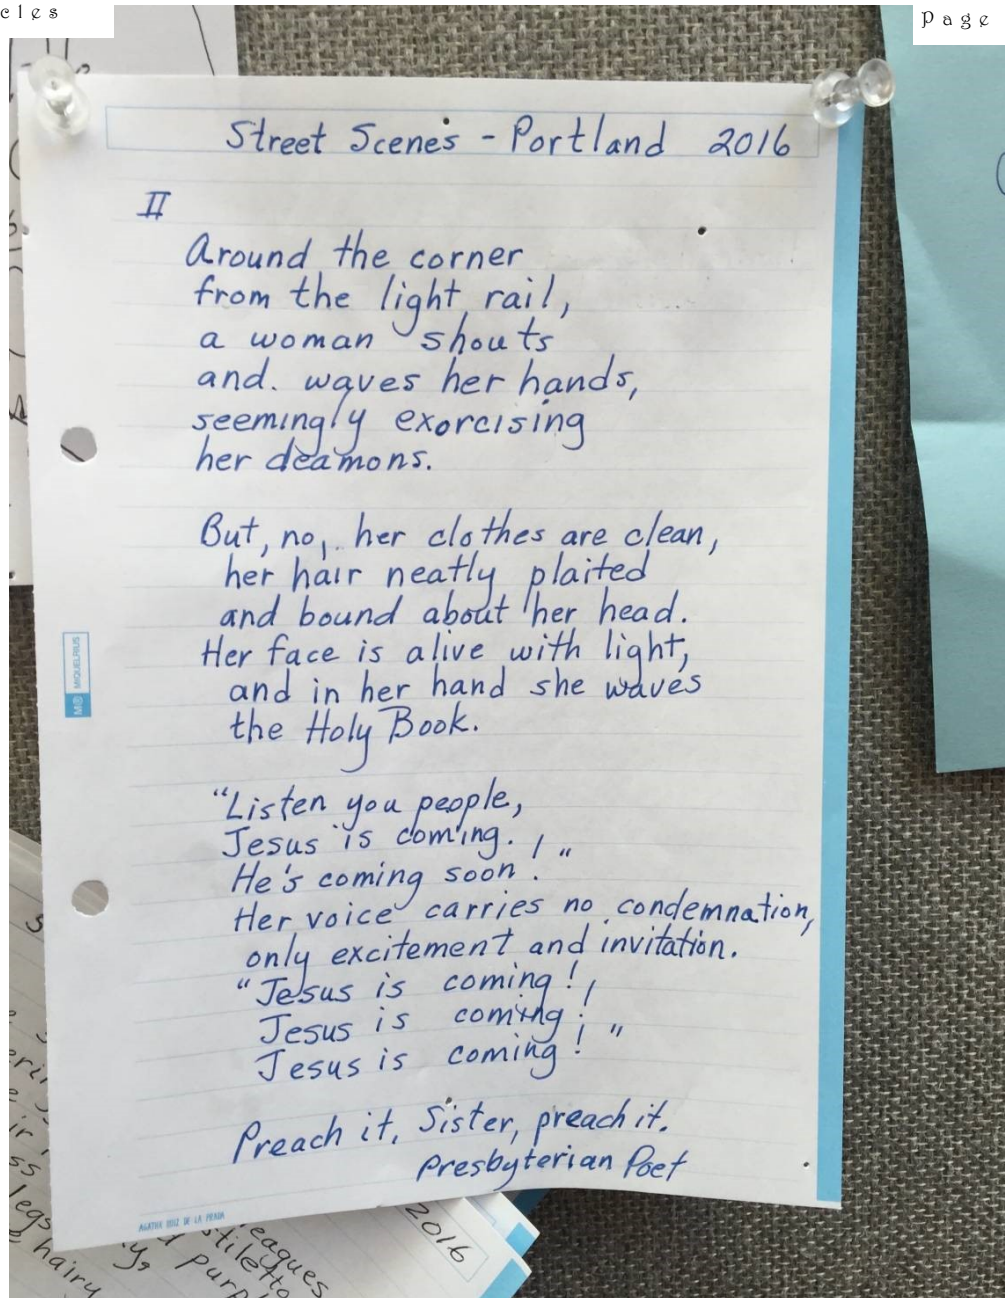 cles
page
Street Scenes - Portland 2016
II
Around the corner
from the light rail,
a woman shouts
and. waves her hands,
seemingly exorcising
her deamons.
But, no, her clothes are clean,
her hair neatly plaited
and bound about her head.
Her face is alive with light,
and in her hand she waves
the Holy Book.
"Listen you people,
Jesus is coming.
He's coming soon!"
Her voice carries no condemnation,
only excitement and invitation.
"Jesus is coming!
Jesus is coming!
Jesus is coming!"
Preach it, Sister, preach it.
Presbyterian Poet
MIQUELRIUS
AGATHA RUIZ DE LA PRADA
2016
eagues
stiletto
purp
legs
hairy